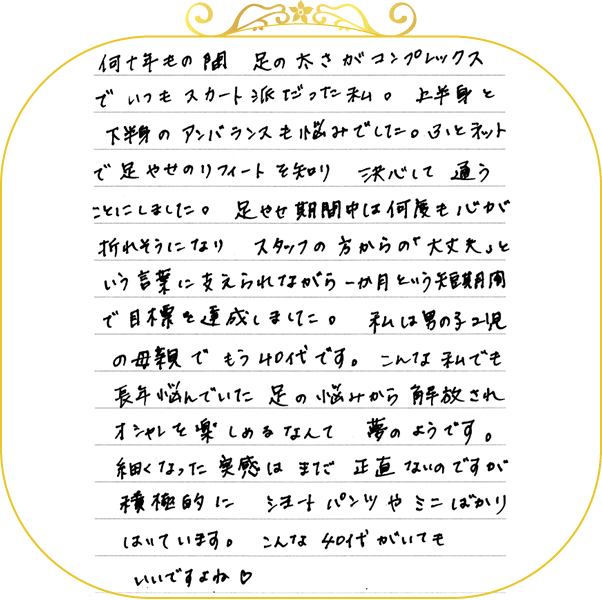 何十年もの間 足の太さがコンプレックス
でいつもスカート派だった私。 上半身と
下半身のアンバランスも悩みでした。ふとネット
で足やせのリフィートを知り 決心して通う
ことにしました。 足やせ期間中は何度も心が
折れそうになり スタッフの方からの「大丈夫」と
いう言葉に支えられながら一か月という短期間
で目標を達成しました。 私は男の子2児
の母親でもう40代です。 こんな私でも
長年悩んでいた足の悩みから解放され
オシャレを楽しめるなんて 夢のようです。
細くなった実感はまだ正直ないのですが
積極的に ショートパンツやミニばかり
はいています。 こんな40代がいても
いいですよね♡